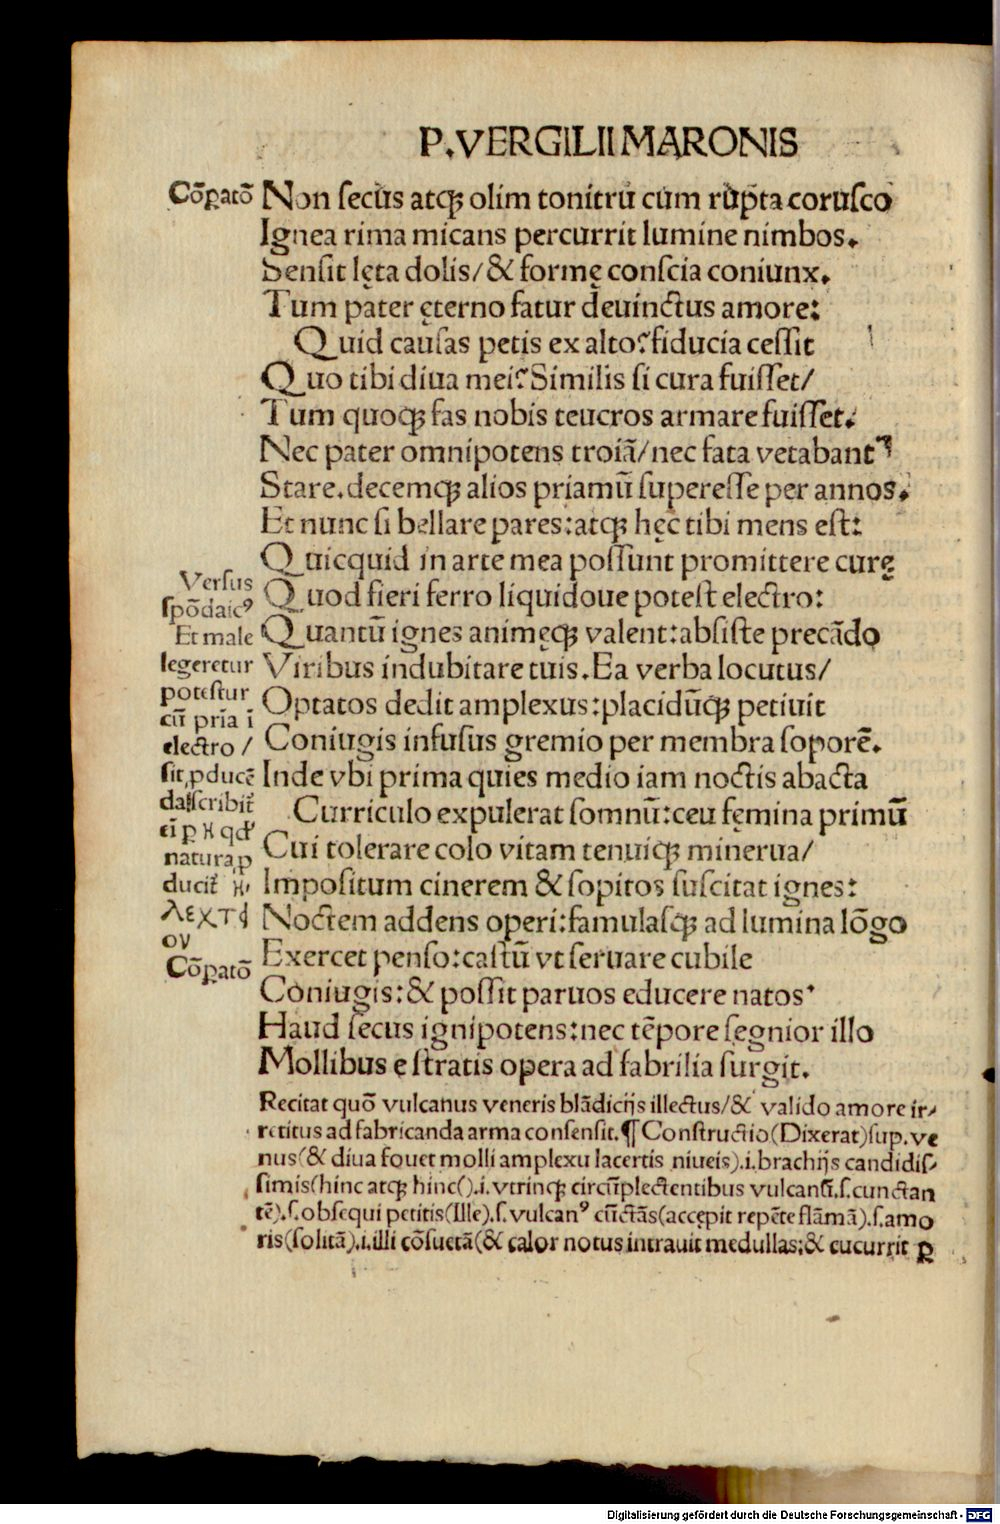 P. VERGILII MARONIS
Cõꝑatõ
Non secus atqꝫ olim tonitru cum rupta corusco
Ignea rima micans percurrit lumine nimbos.
Sensit lęta dolis/& formę conscia coniunx.
Tum pater ęterno fatur deuinctus amore:
Quid causas petis ex alto? fiducia cessit
Quo tibi diua mei? Similis si cura fuisset/
Tum quoqꝫ fas nobis teucros armare fuisset.
Nec pater omnipotens troiã/nec fata vetabant
Stare. decemqꝫ alios priamũ superesse per annos.
Et nunc si bellare pares: atqꝫ hęc tibi mens est:
Quicquid in arte mea possunt promittere curę
Quod fieri ferro liquidoue potest electro:
Quantũ ignes animęqꝫ valent: absiste precãdo
Viribus indubitare tuis. Ea verba locutus/
Optatos dedit amplexus: placidũqꝫ petiuit
Coniugis infusus gremio per membra soporẽ.
Inde vbi prima quies medio iam noctis abacta
Curriculo expulerat somnũ: ceu fęmina primũ
Cui tolerare colo vitam tenuiqꝫ minerua/
Impositum cinerem & sopitos suscitat ignes:
Noctem addens operi: famulasqꝫ ad lumina lõgo
Exercet penso: castũ vt seruare cubile
Coniugis: & possit paruos educere natos
Haud secus ignipotens: nec tẽpore segnior illo
Mollibus e stratis opera ad fabrilia surgit.
Versus
spõdaicꝰ
Et male
legeretur
potestur
cũ pria i
electro /
sit, pducẽ
da: scribit̃
ei p
natura p
ducit̃
λεχτρ
ου
Cõꝑatõ
Recitat quõ vulcanus veneris blãdicijs illectus/& valido amore ir-
retitus ad fabricanda arma consensit. ¶ Constructio (Dixerat) sup. ve
nus (& diua fouet molli amplexu lacertis niueis) .i. brachijs candidis-
simis (hinc atqꝫ hinc () .i. vtrinqꝫ circũplectentibus vulcanũ. s. cunctan
tẽ) .s. obsequi petitis (Ille) .s. vulcanꝰ cũctãs (accępit repẽte flãmã) .s. amo
ris (solitã) .i. illi cõsuetã (& calor notus intrauit medullas; & cucurrit ꝑ
Digitalisierung gefördert durch die Deutsche Forschungsgemeinschaft - DFG